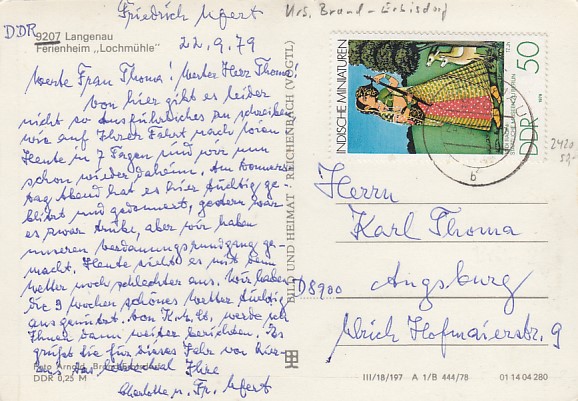 Friedrich Ufert
Krs. Brand-Erbisdorf
DDR
9207 Langenau
Ferienheim „Lochmühle"
22.9.79
Werte Frau Thoma! Werter Herr Thoma!
Von hier gibt es leider
nicht so Ausführliches zu schreiben
wie auf Ihrer Fahrt nach
Heute in 7 Tagen sind wir nun
schon wieder daheim. Am Donners
tag Abend hat es hier tüchtig ge
blitzt und gedonnert, gestern war
es zwar trübe, aber wir haben
unseren Verdauungsrundgang ge
macht. Heute sieht es mit dem
Wetter noch schlechter aus. Wir haben
die 3 Wochen schönes Wetter tüchtig
ausgenützt. Von K.M.St. werde ich
Ihnen dann weiter berichten. Es
grüßt Sie für dieses Jahr von hier
aus das letzte mal Ihre
Charlotte u. Fr. Ufert
Foto Arnold, Brand-Erbisdorf
DDR 0,25 M
BILD UND HEIMAT REICHENBACH (VOGTL)
INDISCHE MINIATUREN
DDR 50
1979
2420
50,-
Herrn
Karl Thoma
D 8900 Augsburg
Ulrich Hofmaierstr. 9
III/18/197 A 1/B 444/78 01 14 04 280